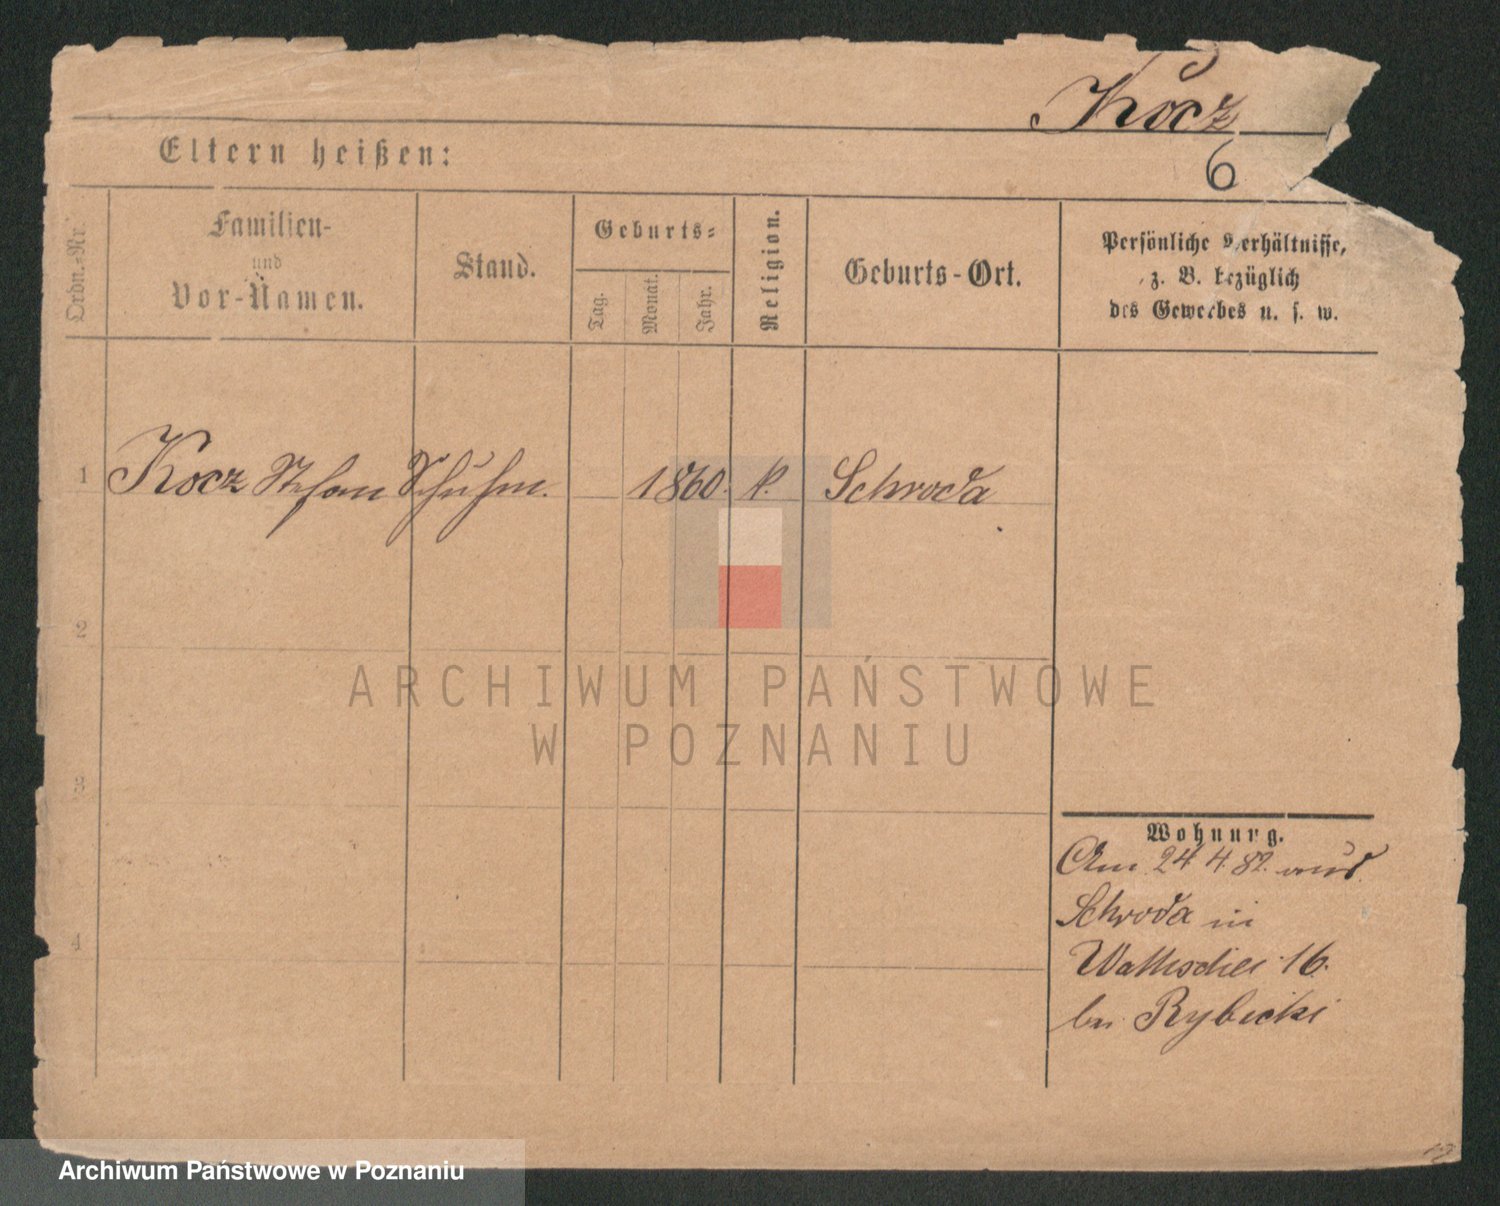 Kocz
Eltern heißen:
6
Ordn.-Nr.
Familien-
und
Vor-Namen.
Stand.
Geburts-
Tag.
Monat.
Jahr.
Religion.
Geburts-Ort.
Persönliche Verhältnisse,
z. B. bezüglich
des Gewerbes u. s. w.
1 Kocz Stefan Schuhm. 1860. k. Schroda
2
ARCHIWUM PAŃSTWOWE
W POZNANIU
3
Wohnung.
Am 24.4.82. aus
Schroda in
Wallischei 16.
4
bei Rybicki
Archiwum Państwowe w Poznaniu